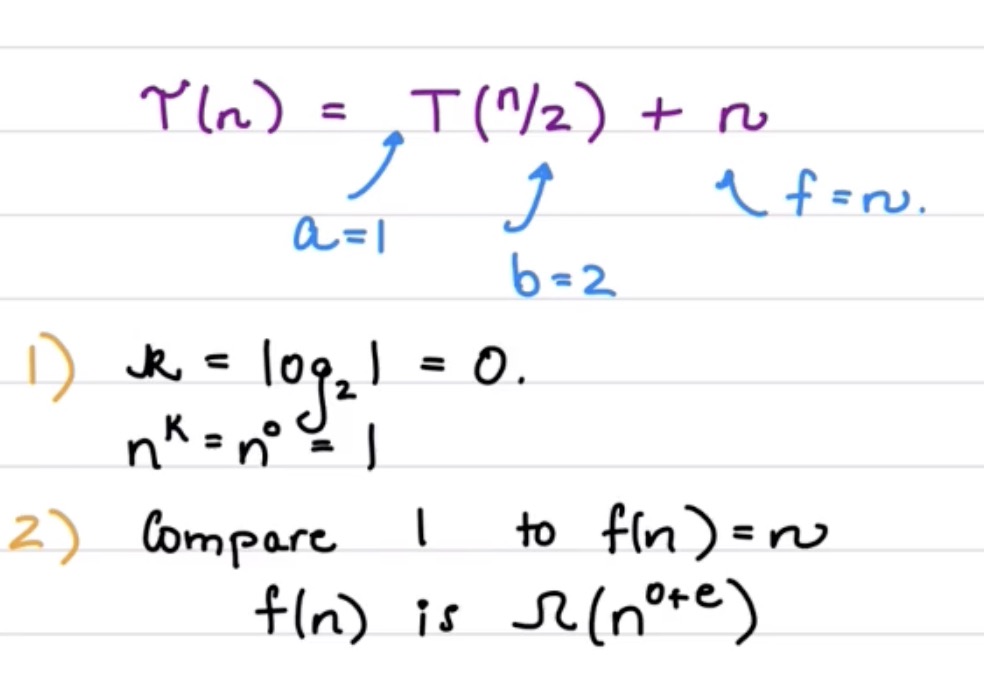 T(n) = T(n/2) + n
a=1
b=2
f=n.
1) k = log₂ 1 = 0.
nᵏ = n⁰ = 1
2) Compare 1 to f(n)=n
f(n) is Ω(n⁰⁺ᵉ)